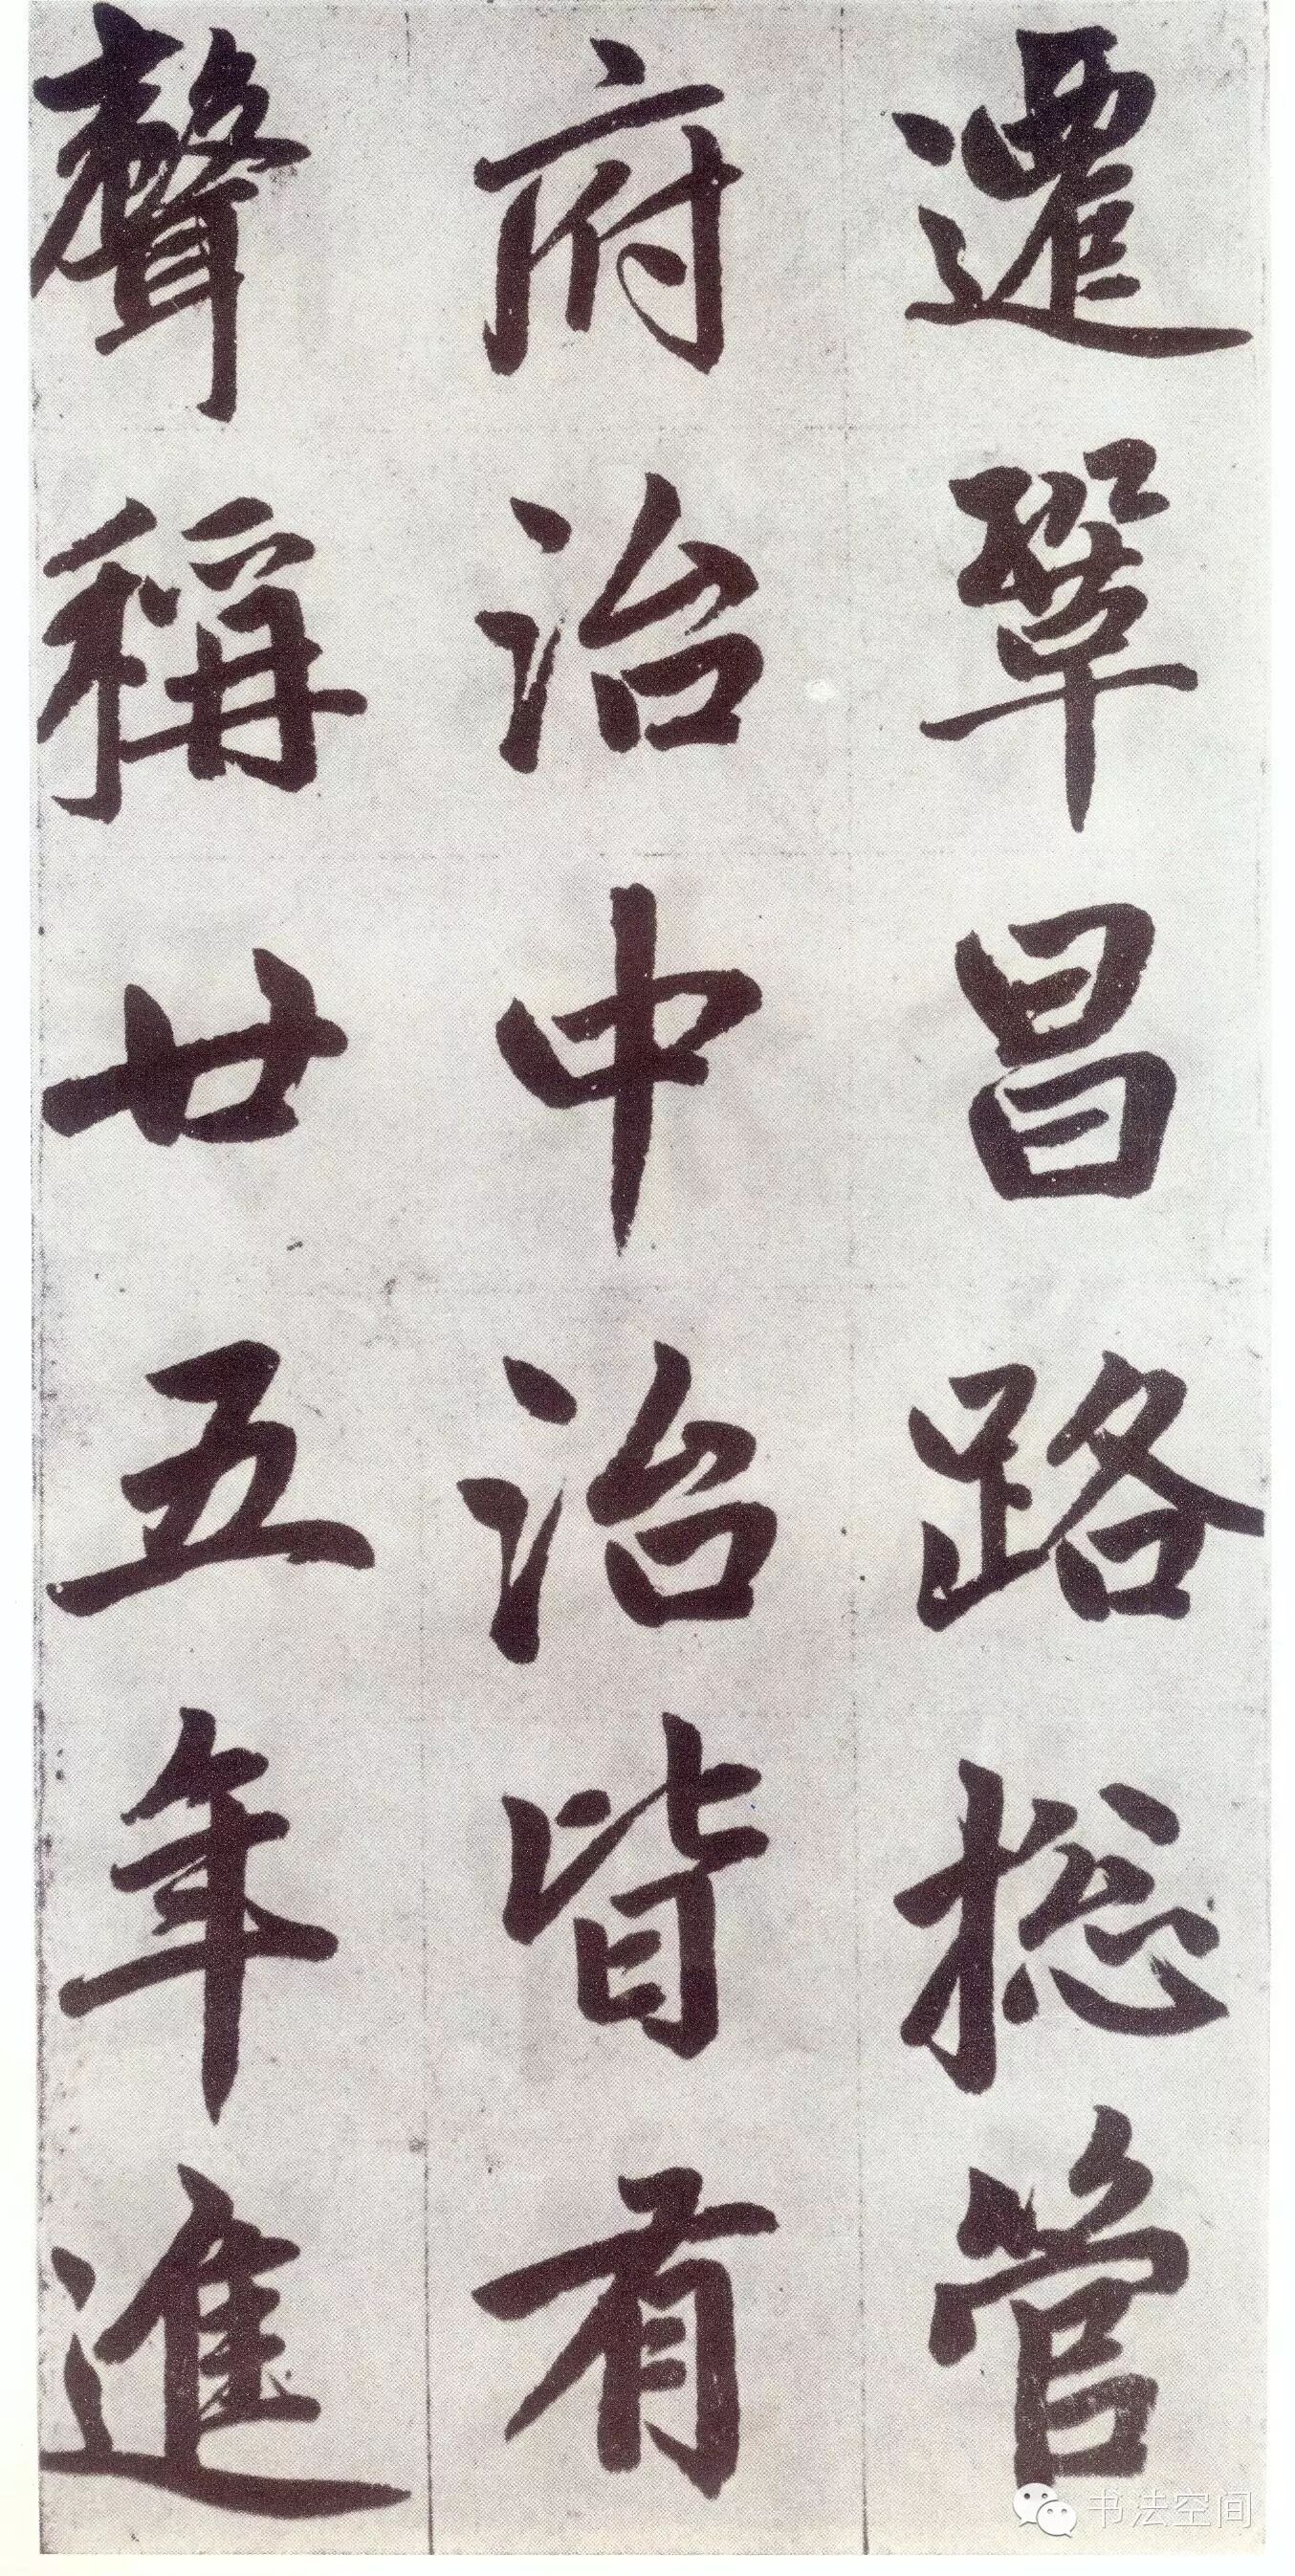 遷鞏昌路捴管
府治中治皆有
聲稱廿五年進
书法空间